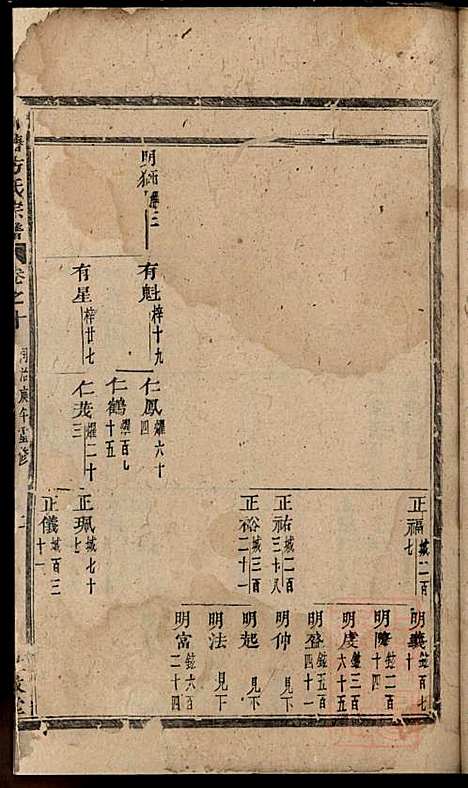 有魁 梓十九
有星 梓廿七
仁鳳 耀六十四
仁鶴 耀百九十五
仁茂 耀二十三
正福 城二百七
正祐 城二百三十八
正裕 城三百二十一
正珮 城七十七
正儀 城百三十一
明義 鉉百七十
明隆 鉉二百十四
明度 鉉三百六十五
明登 鉉五百四十一
明仲 見下
明起 見下
明法 見下
明富 鉉六百二十四
方氏宗譜
卷之十
同治庚午重修
二